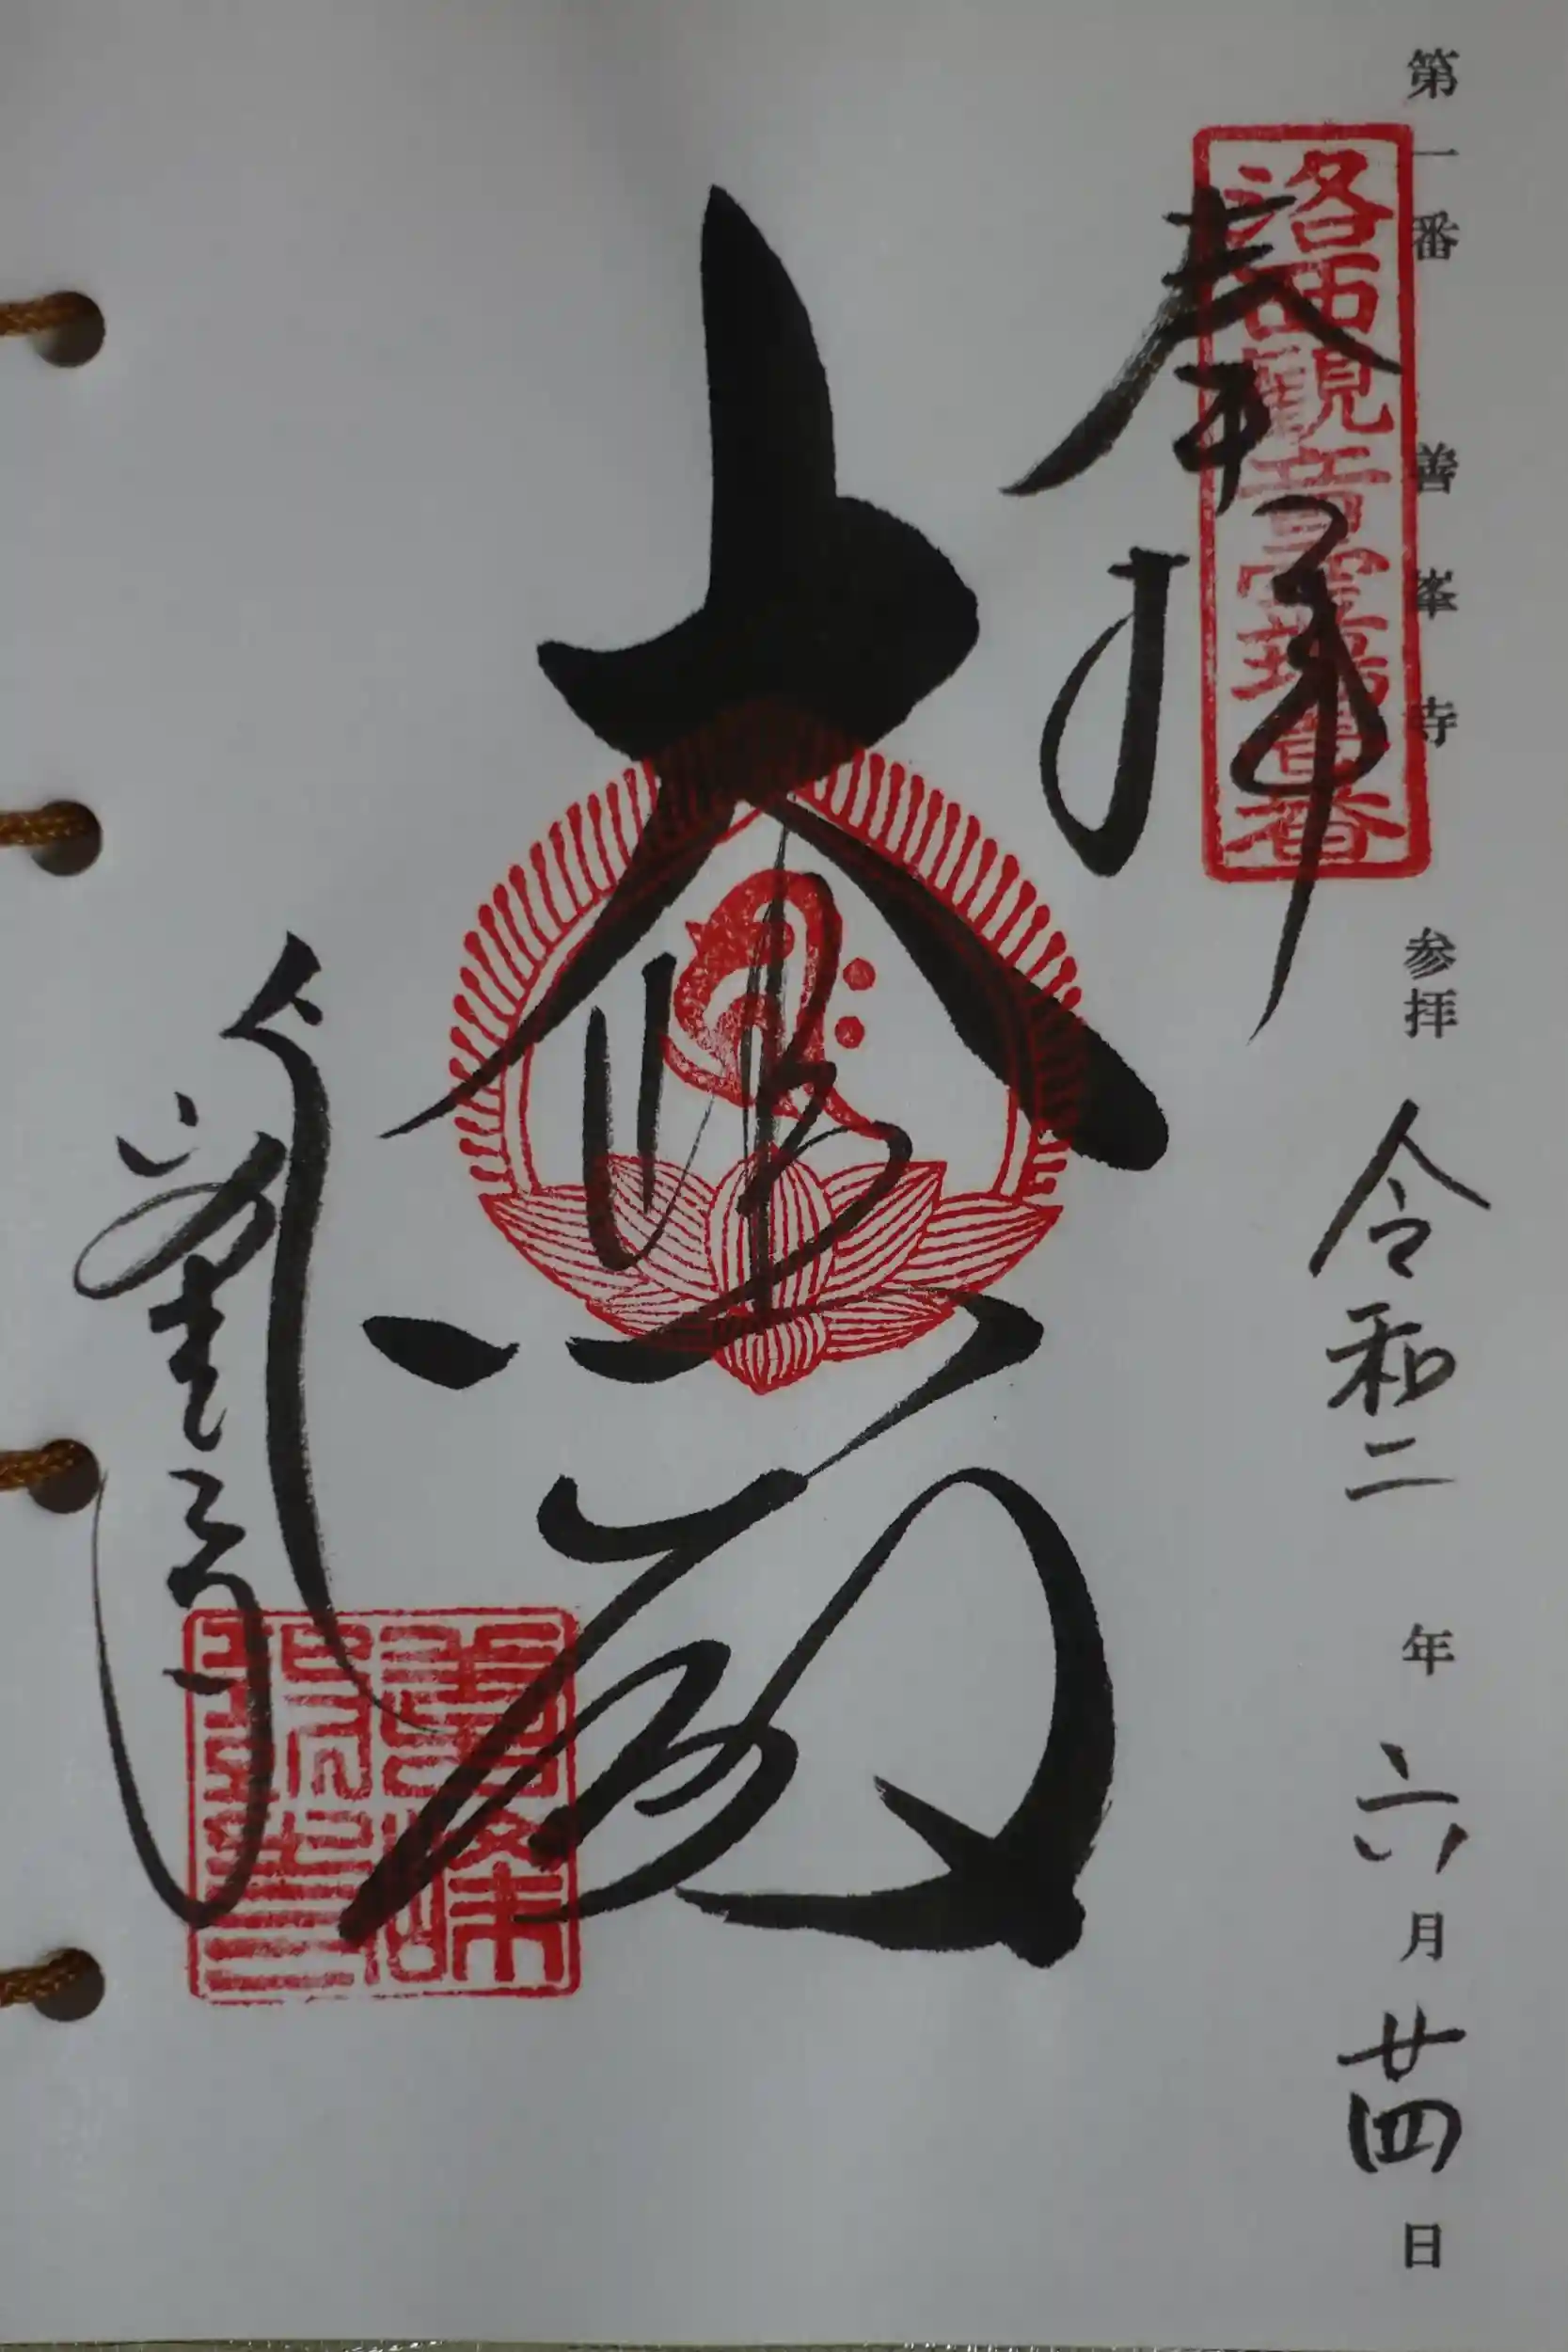 第一番 善峯寺 参拝 令和二年 六月 廿四日
洛西観音霊場第一番
奉拝
大悲殿
善峯寺